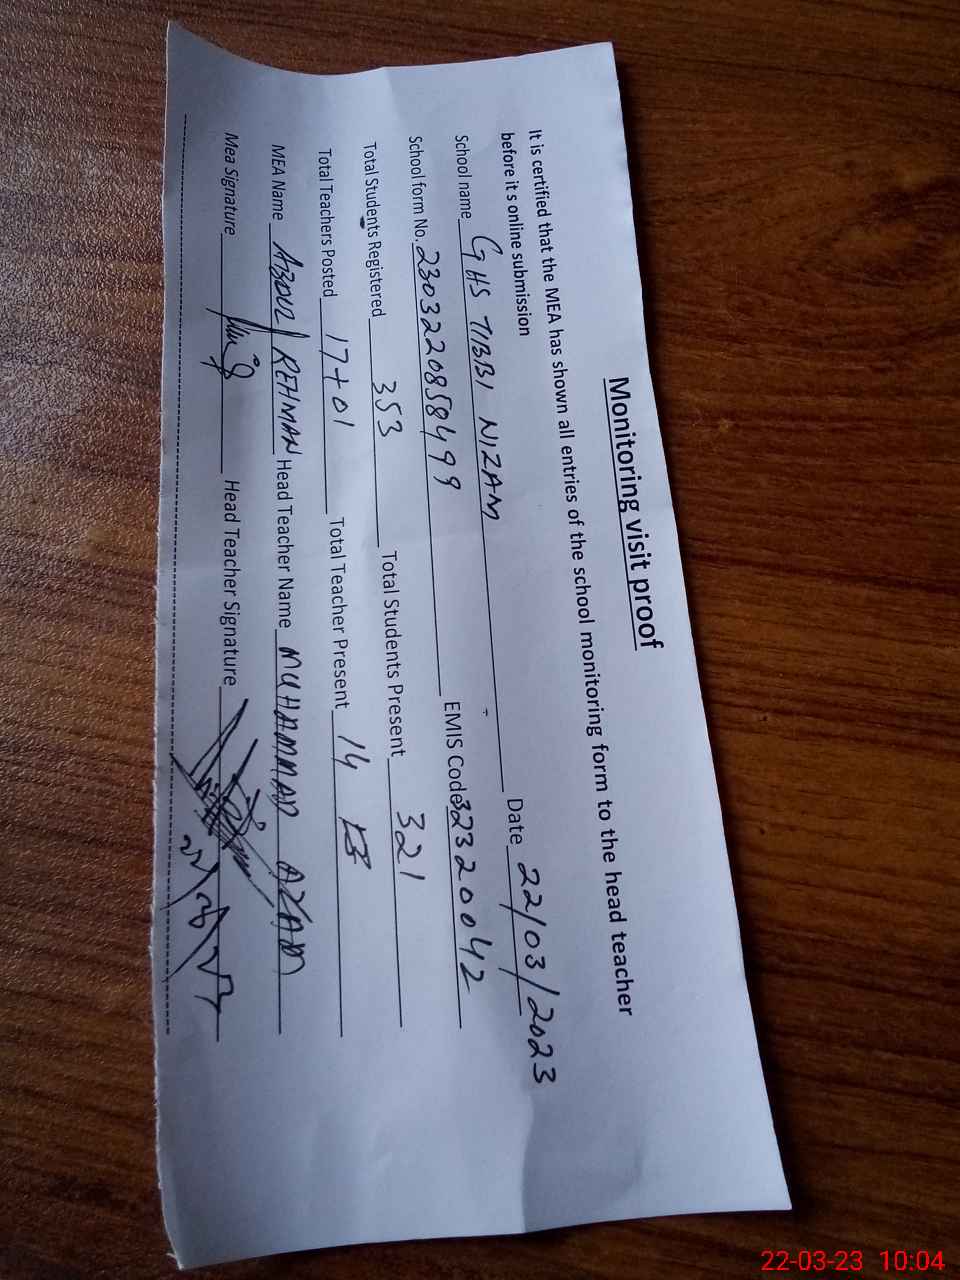 Monitoring visit proof
It is certified that the MEA has shown all entries of the school monitoring form to the head teacher
before it s online submission
School name GHS TIBBI NIZAM Date 22/03/2023
School form No. 2303220858499 EMIS Code 32320042
Total Students Registered 353 Total Students Present 321
Total Teachers Posted 17+01 Total Teacher Present 14
MEA Name ABDUL REHMAN Head Teacher Name MUHAMMAD AZAM
Mea Signature Head Teacher Signature
22-03-23 10:04